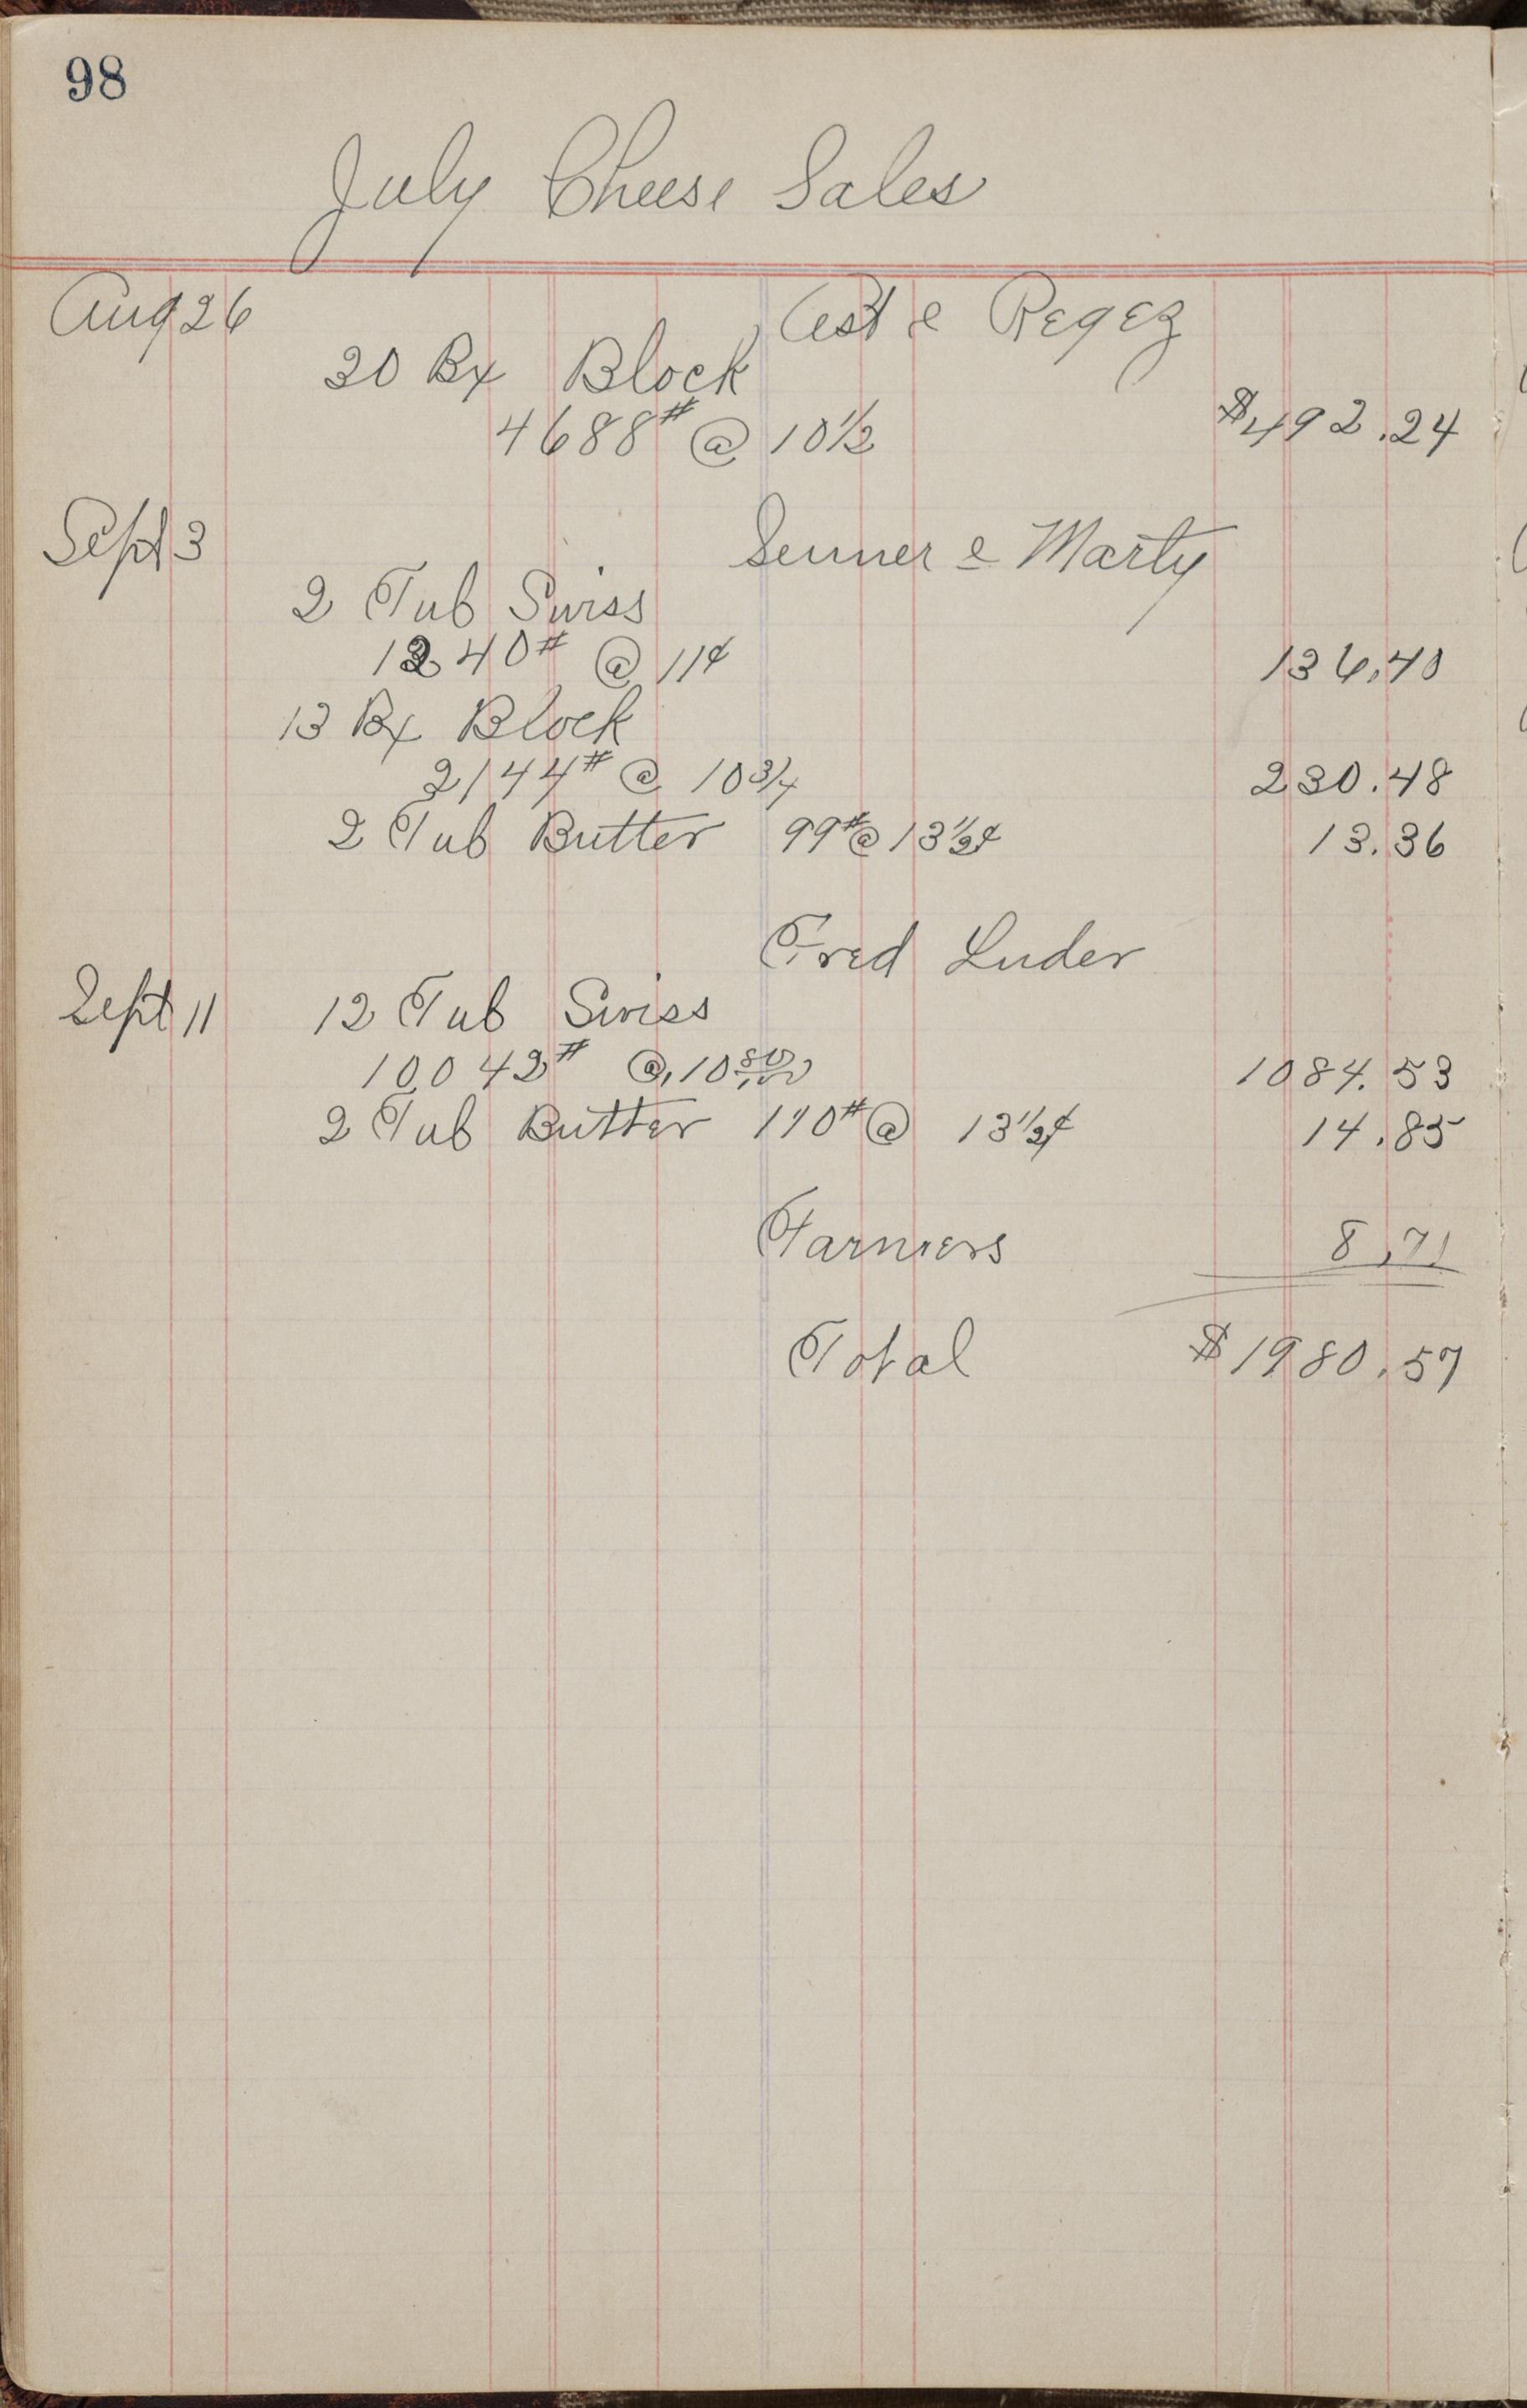 98
July Cheese Sales
Aug 26 Ast & Regez
30 Bx Block
4688# @ 10 1/2 $492.24
Sept 3 Senner & Marty
2 Tub Swiss
1240# @ 11¢ 136.40
13 Bx Block
2144# @ 10 3/4 230.48
2 Tub Butter 99# @ 13 1/2¢ 13.36
Fred Luder
Sept 11 12 Tub Swiss
10042# @ 10 80/100 1084.53
2 Tub Butter 110# @ 13 1/2¢ 14.85
Farmers 8.71
Total $1980.57